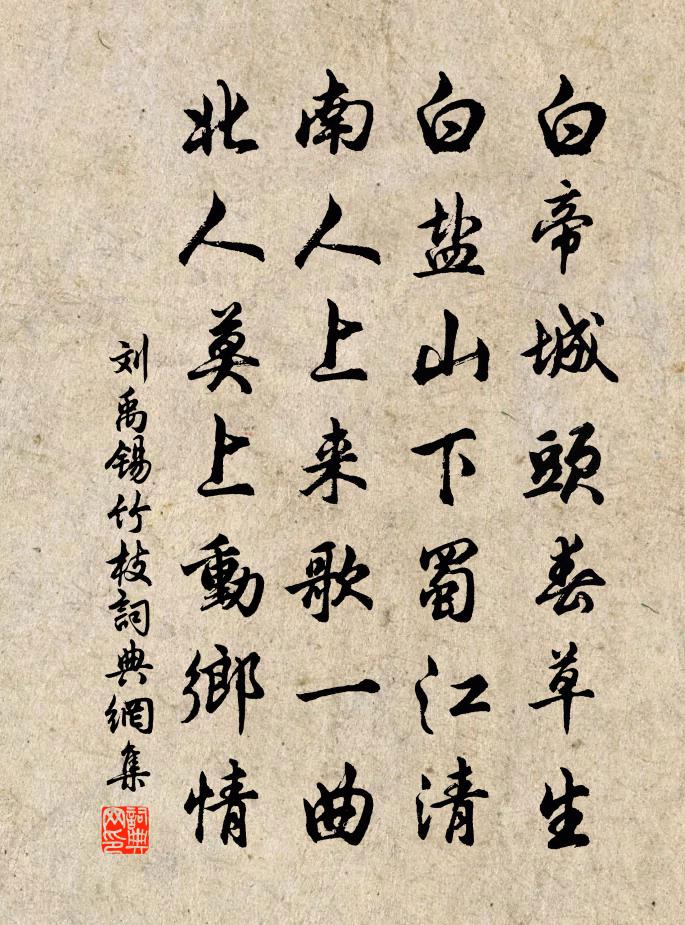 白帝城頭春草生
白盐山下蜀江清
南人上来歌一曲
北人莫上動鄉情
刘禹锡竹枝詞典網集
詞典网印